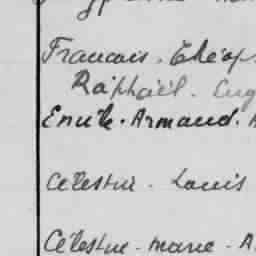 Francois. Théop
Raphaël. Eug
Emile. Armand. A
Célestin. Louis
Célestine. marie. A